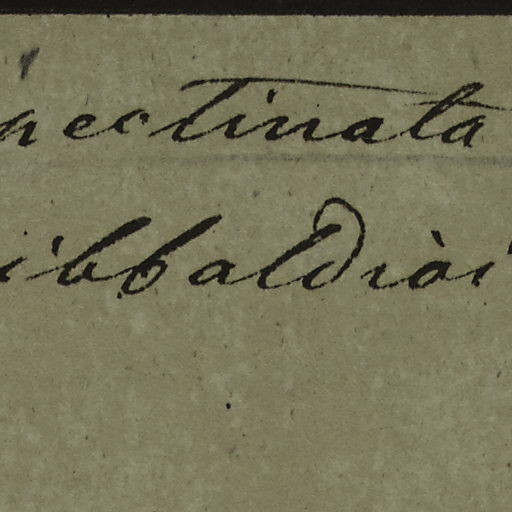 pectinata
ibbaldiai